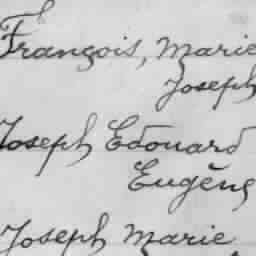 François, Marie
Joseph
Joseph Edouard
Eugène
Joseph Marie